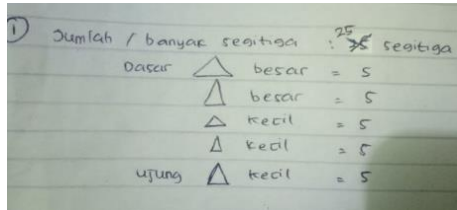 ① Jumlah / banyak segitiga : 25 segitiga
Dasar △ besar = 5
△ besar = 5
△ kecil = 5
△ kecil = 5
ujung △ kecil = 5